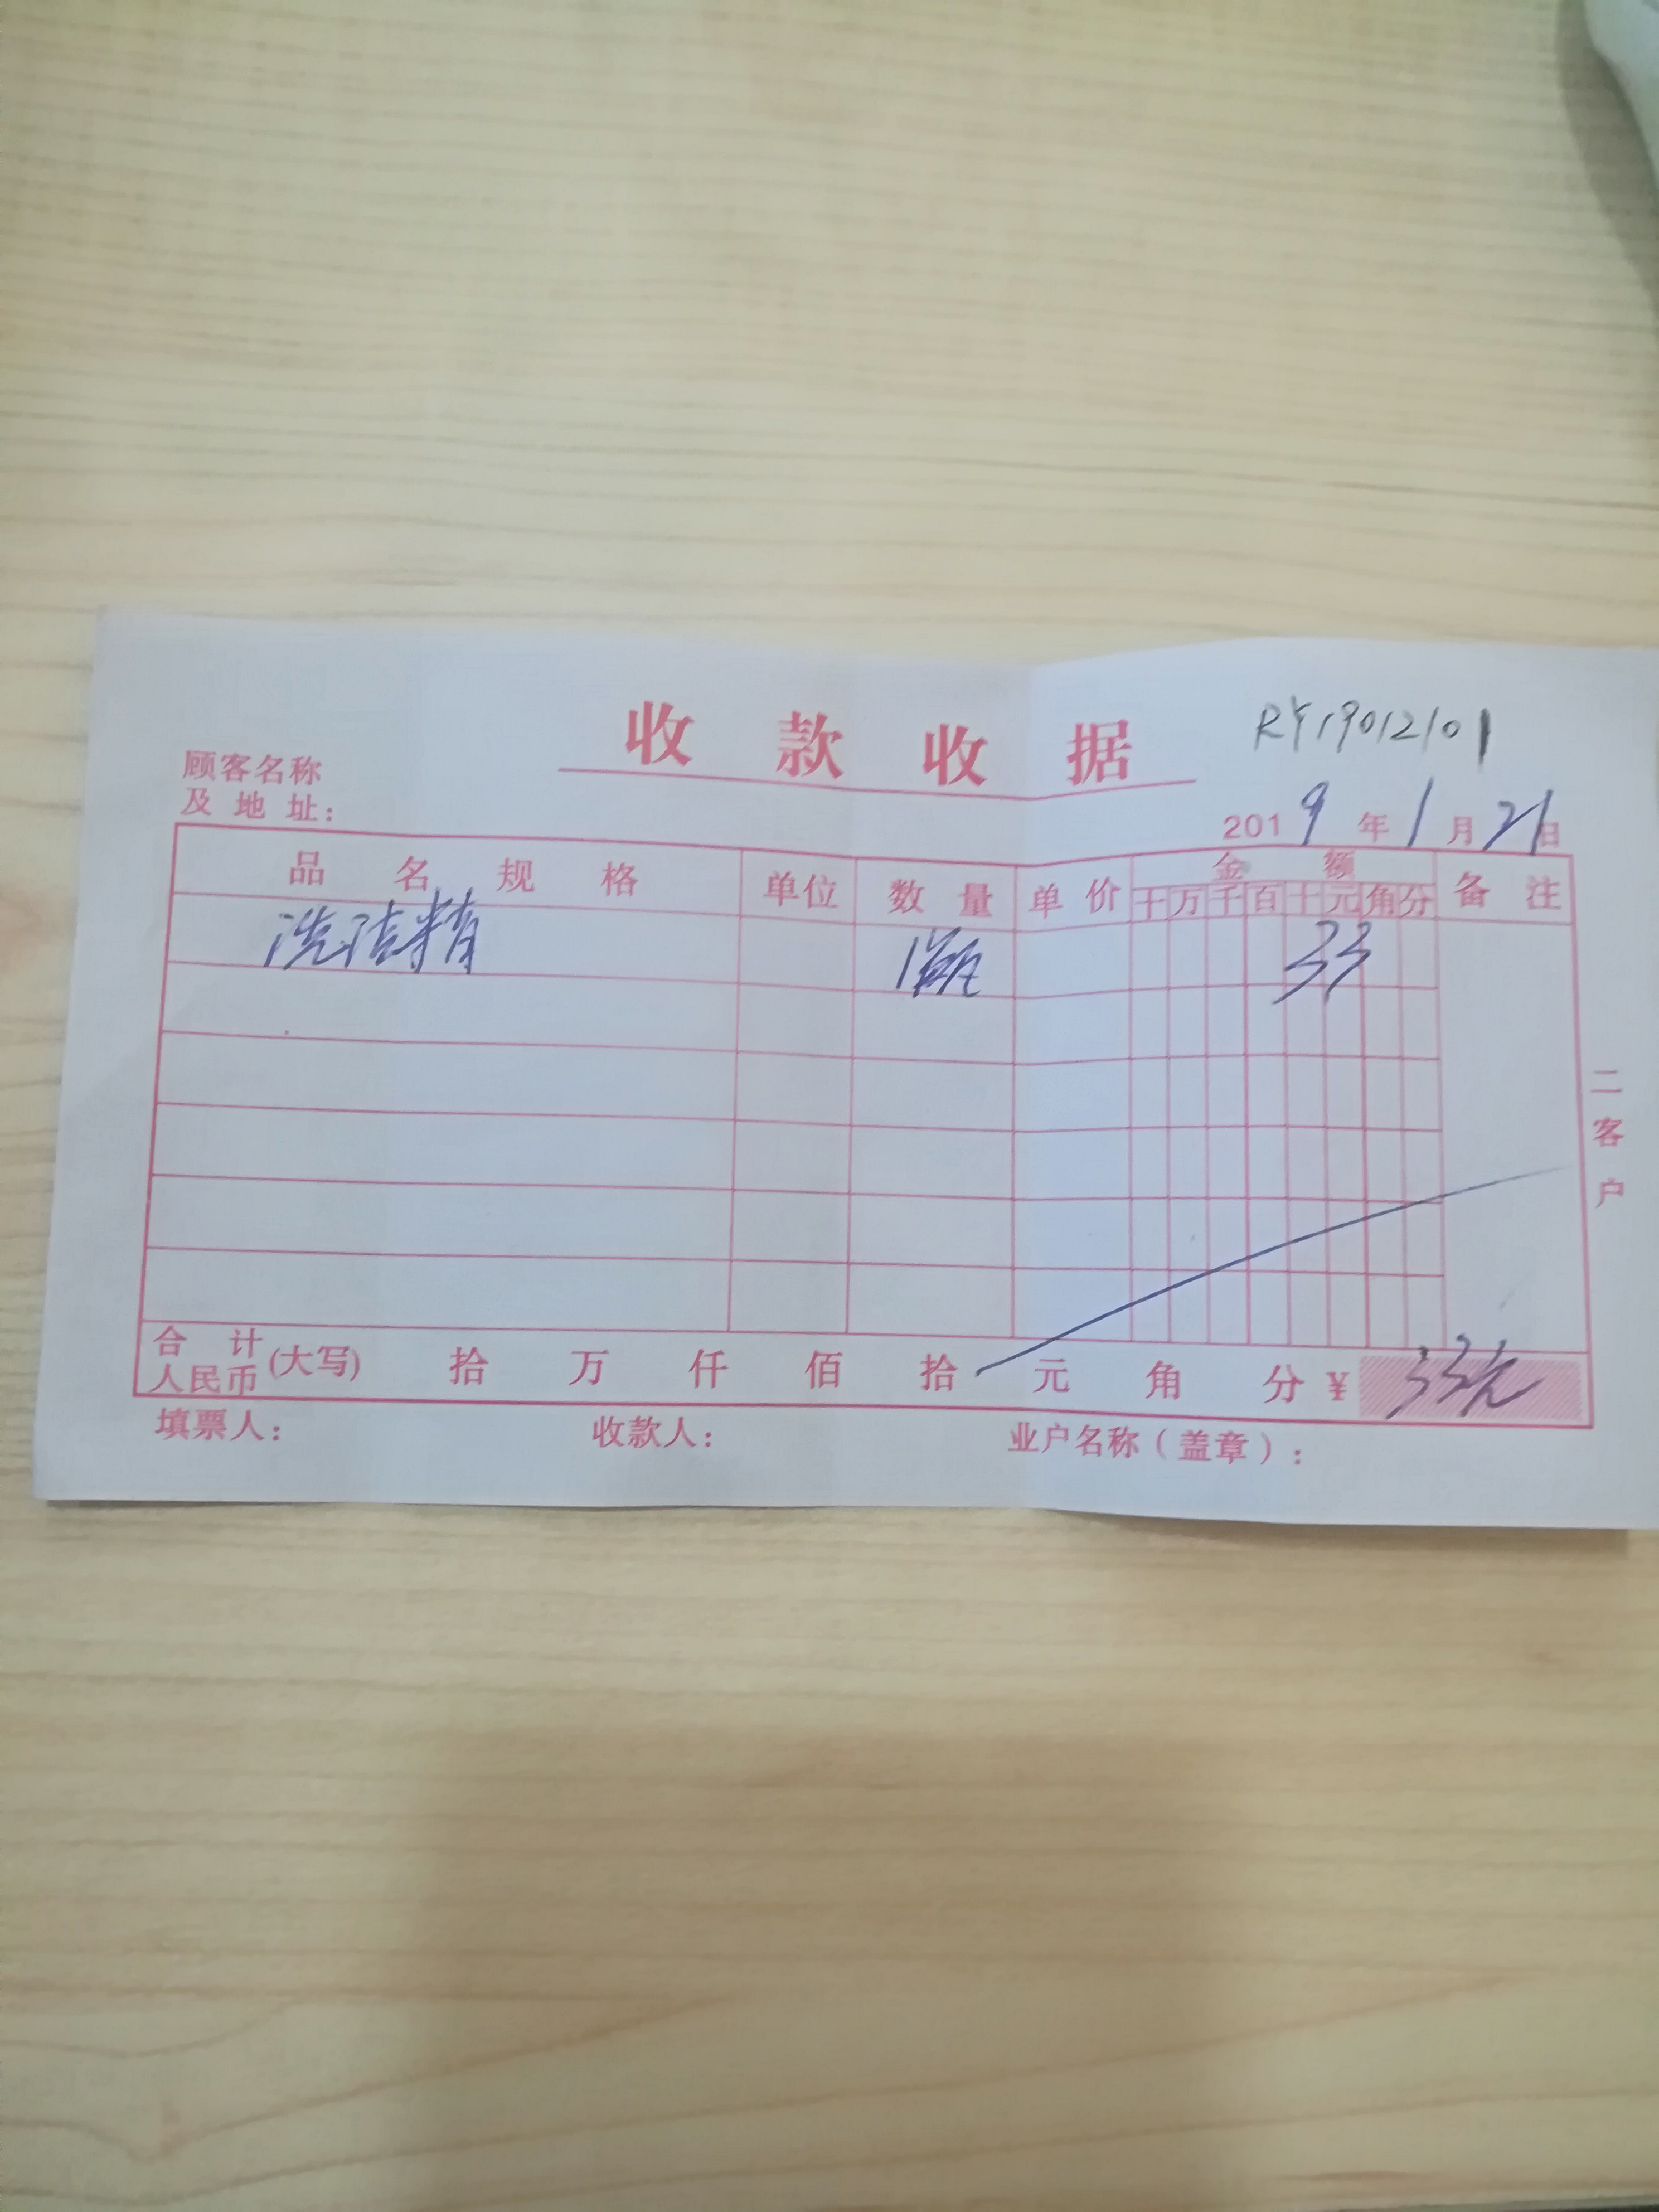 收款收据
RY19012101
顾客名称
及地址:
2019年1月21日
品名规格 单位 数量 单价 金额 备注
十万千百十元角分
洗洁精 1瓶 33
二客户
合计
人民币(大写) 拾 万 仟 佰 拾 元 角 分 ¥ 33元
填票人: 收款人: 业户名称(盖章):